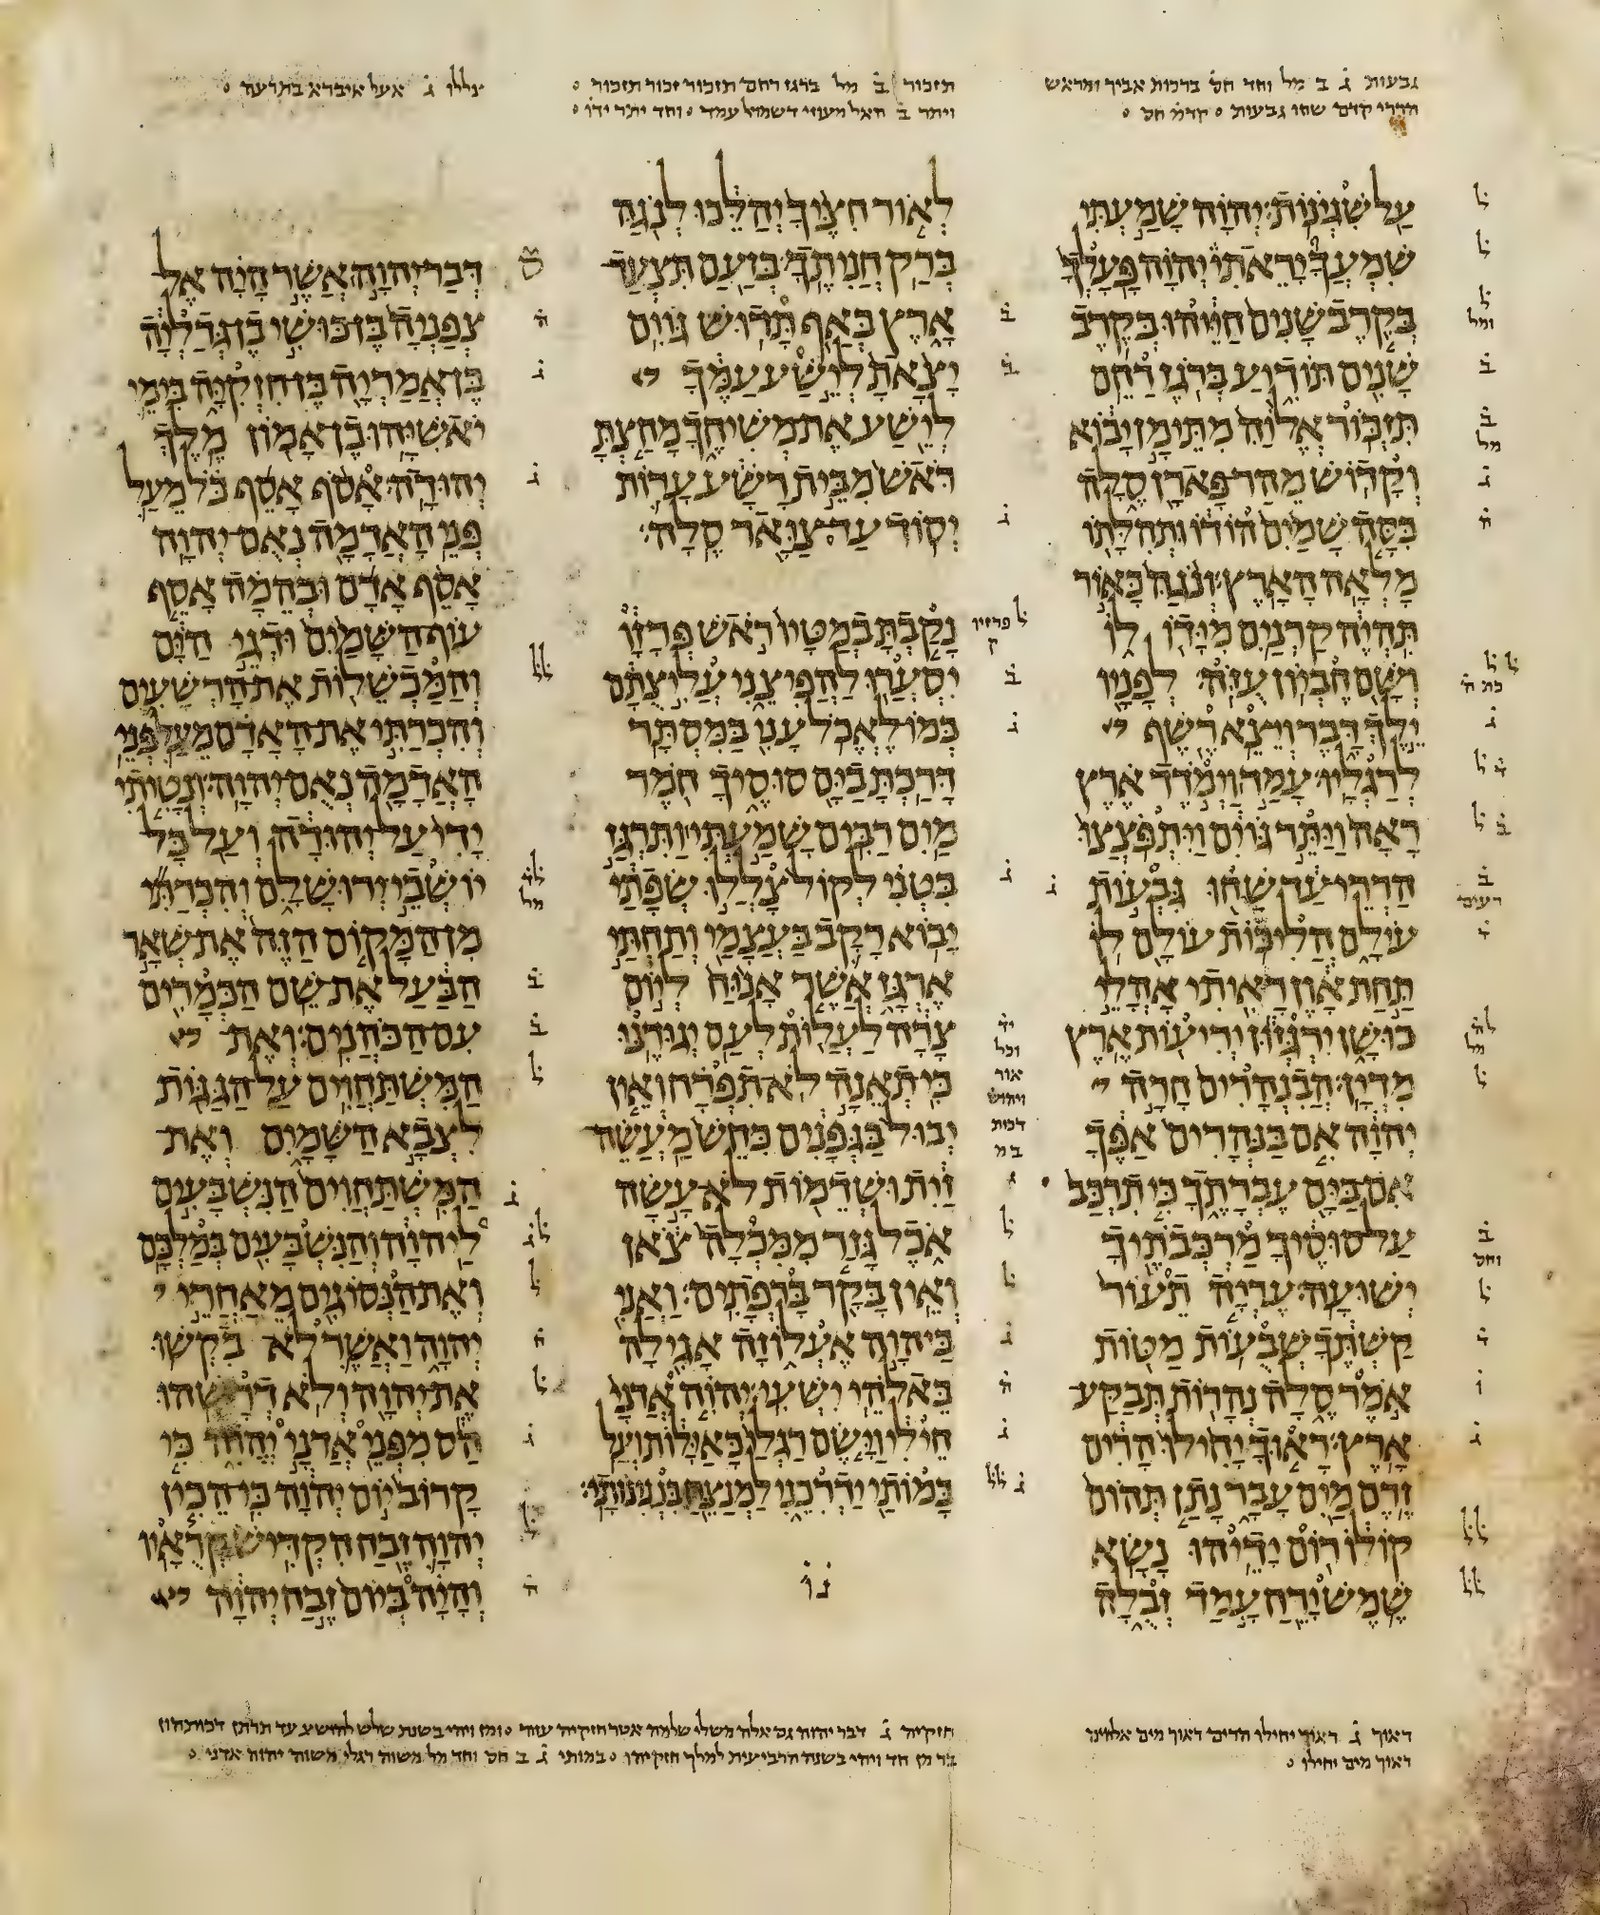 גבעות ג ב מל וחד חס ברכות אביך ומראש
הררי קדם שחו גבעות ० קדמ חס ०
תזכור ב מל ברגז רחם תזכור זכור תזכור ०
ויתר ב האל מעוזי דשמואל עמד ० וחד יתר ידו ०
צללו ג
על שגינות׃ יהוה שמעתי
שמעך יראתי יהוה פעלך
בקרב שנים חייהו בקרב
שנים תודיע ברגז רחם
תזכור׃ אלוה מתימן יבוא
וקדוש מהר פארן סלה
כסה שמים הודו ותהלתו
מלאה הארץ׃ ונגה כאור
תהיה קרנים מידו לו
ושם חביון עזה׃ לפניו
ילך דבר ויצא רשף
לרגליו׃ עמד וימדד ארץ
ראה ויתר גוים ויתפצצו
הררי עד שחו גבעות
עולם הליכות עולם לו׃
תחת און ראיתי אהלי
כושן ירגזון יריעות ארץ
מדין׃ הבנהרים חרה
יהוה אם בנהרים אפך
אם בים עברתך כי תרכב
על סוסיך מרכבתיך
ישועה׃ עריה תעור
קשתך שבעות מטות
אמר סלה נהרות תבקע
ארץ׃ ראוך יחילו הרים
זרם מים עבר נתן תהום
קולו רום ידיהו נשא׃
שמש ירח עמד זבלה
לאור חציך יהלכו לנגה
ברק חניתך׃ בזעם תצעד
ארץ באף תדוש גוים׃
יצאת לישע עמך
לישע את משיחך מחצת
ראש מבית רשע ערות
יסוד עד צואר סלה׃
נקבת במטיו ראש פרזו
יסערו להפיצני עליצתם
כמו לאכל עני במסתר׃
דרכת בים סוסיך חמר
מים רבים׃ שמעתי ותרגז
בטני לקול צללו שפתי
יבוא רקב בעצמי ותחתי
ארגז אשר אנוח ליום
צרה לעלות לעם יגודנו׃
כי תאנה לא תפרח ואין
יבול בגפנים כחש מעשה
זית ושדמות לא עשה
אכל גזר ממכלה צאן
ואין בקר ברפתים׃ ואני
ביהוה אעלוזה אגילה
באלהי ישעי׃ יהוה אדני
חילי וישם רגלי כאילות ועל
במותי ידרכני למנצח בנגינותי׃
נו
דבר יהוה אשר היה אל
צפניה בן כושי בן גדליה
בן אמריה בן חזקיה בימי
יאשיהו בן אמון מלך
יהודה׃ אסף אסף כל מעל
פני האדמה נאם יהוה׃
אסף אדם ובהמה אסף
עוף השמים ודגי הים
והמכשלות את הרשעים
והכרתי את האדם מעל פני
האדמה נאם יהוה׃ ונטיתי
ידי על יהודה ועל כל
יושבי ירושלם והכרתי
מן המקום הזה את שאר
הבעל את שם הכמרים
עם הכהנים׃ ואת
המשתחוים על הגגות
לצבא השמים ואת
המשתחוים הנשבעים
ליהוה והנשבעים במלכם׃
ואת הנסוגים מאחרי
יהוה ואשר לא בקשו
את יהוה ולא דרשהו׃
הס מפני אדני יהוה כי
קרוב יום יהוה כי הכין
יהוה זבח הקדיש קראיו׃
והיה ביום זבח יהוה
דאוך ג ראוך יחילו הרים ראוך מים אלהים
ראוך מים יחילו ०
חזקיה ג דבר יהוה גם אלה משלי שלמה אטר חזקיה
בר מן חד ויהי בשנה הרביעית למלך חזקיהו ० במותי ג ב חס וחד מל משוה רגלי משוה יהוה אדני ०